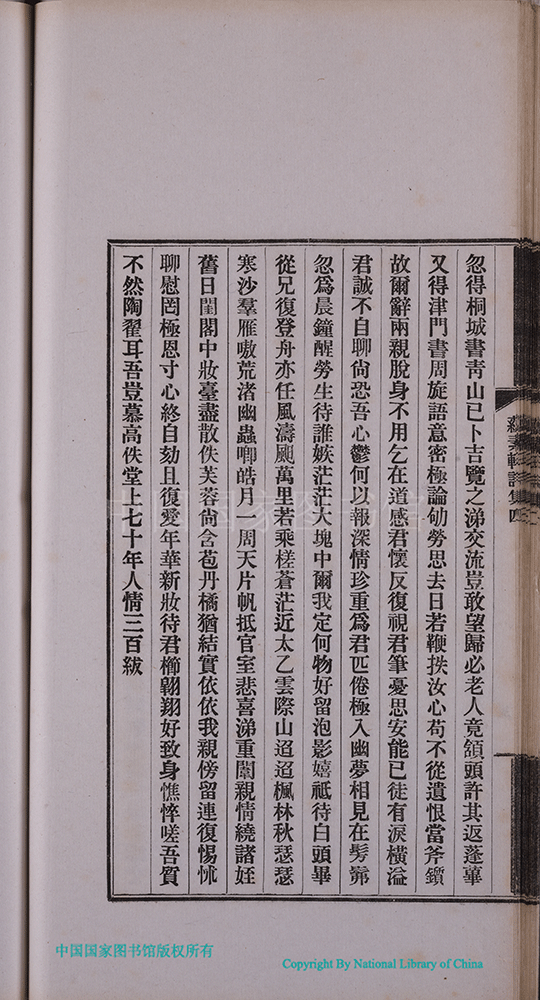 忽得桐城書青山已卜吉覽之涕交流豈敢望歸必老人竟頷頭許其返蓬蓽
又得津門書周旋語意密極論劬勞思去日若鞭抶汝心苟不從遺恨當斧鑕
故爾辭兩親脫身不用乞在道感君懷反復視君筆憂思安能已徒有淚橫溢
君誠不自聊尙恐吾心鬱何以報深情珍重爲君匹倦極入幽夢相見在髣髴
忽爲晨鐘醒勞生待誰嫉茫茫大塊中爾我定何物好留泡影嬉祗待白頭畢
從兄復登舟亦任風濤颶萬里若乘槎蒼茫近太乙雲際山迢迢楓林秋瑟瑟
寒沙羣雁嗷荒渚幽蟲喞皓月一周天片帆抵官室悲喜涕重闈親情繞諸姪
舊日閨閣中妝臺盡散佚芙蓉尙含苞丹橘猶結實依依我親傍留連復惕怵
聊慰罔極恩寸心終自劾且復愛年華新妝待君櫛翱翔好致身憔悴嗟吾質
不然陶翟耳吾豈慕高佚堂上七十年人情三百紱
中国国家图书馆版权所有
Copyright By National Library of China